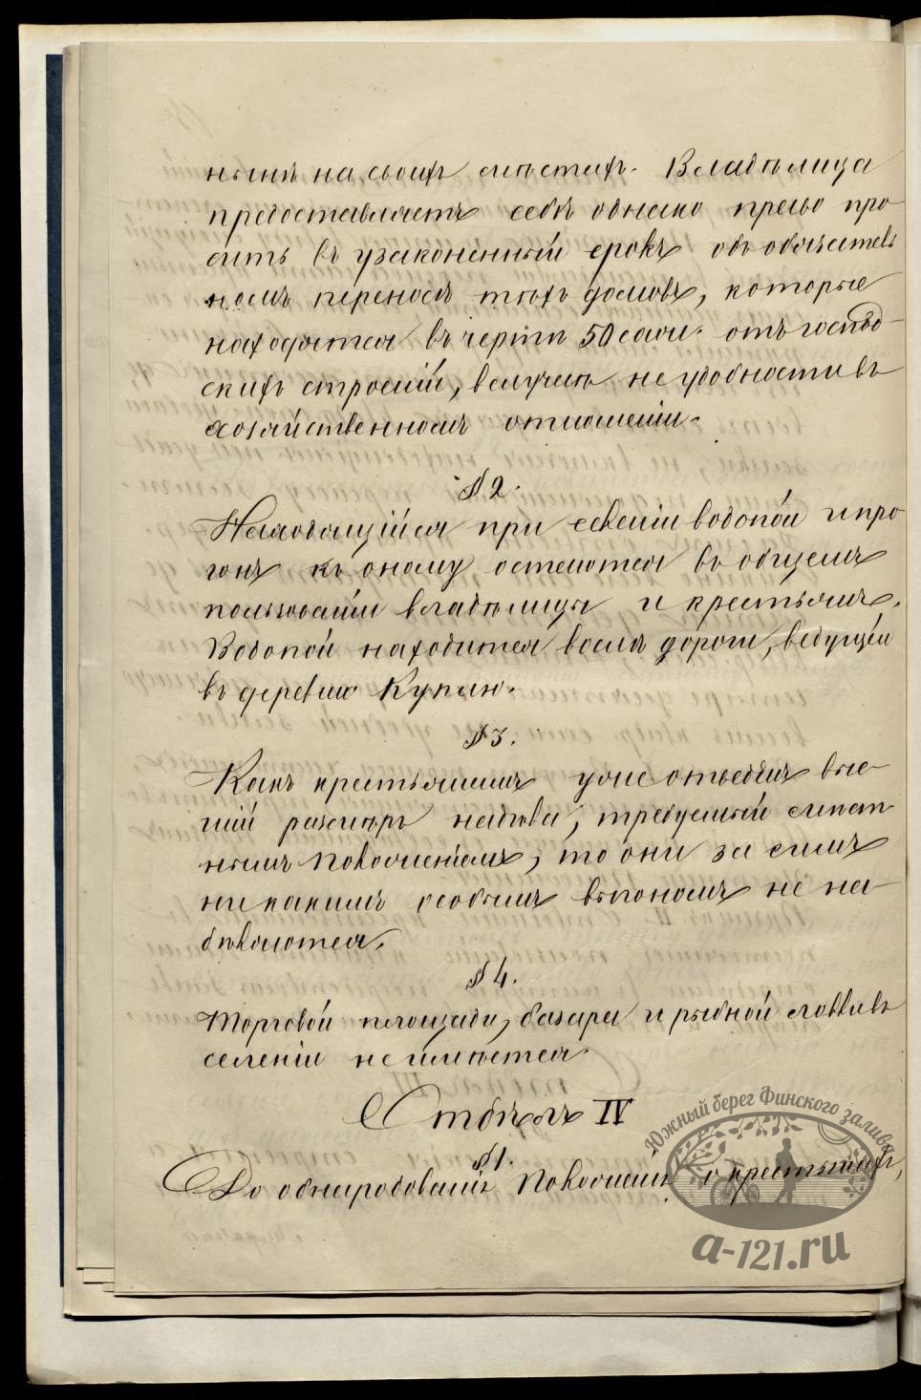 ныне на своихъ мѣстахъ. Владѣлица
предоставляетъ себѣ однако право про-
сить въ узаконенный срокъ объ обязатель
номъ переносѣ тѣхъ домовъ, которые
находятся въ чертѣ 50 саж. отъ господ-
скихъ строеній, въ случаѣ неудобности въ
хозяйственномъ отношеніи.
§ 2.
Находящійся при селеніи водопой и про
гонъ къ оному остаются въ общемъ
пользованіи владѣлицы и крестьянъ.
Водопой находится возлѣ дороги, ведущей
въ деревню Куплю.
§ 3.
Какъ крестьянамъ уже отведенъ выс-
шій размѣръ надѣла, требуемый мѣст
нымъ Положеніемъ, то они за симъ
никакимъ особымъ выгономъ не на-
дѣляются.
§ 4.
Торговой площади, базара и рыбной ловли въ
селеніи не имѣется.
Отдѣлъ IV
§ 1.
До обнародованія Положенія о крестьянахъ,
Южный берег Финского залива
a-121.ru